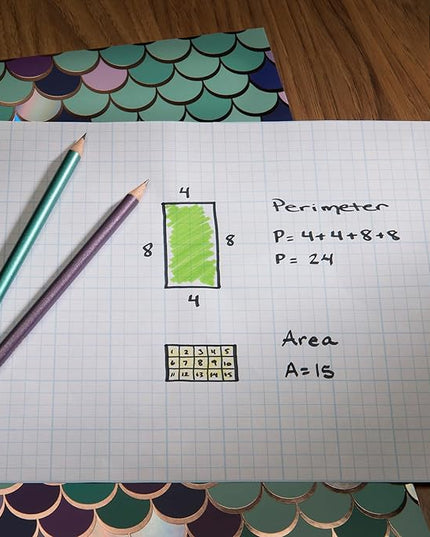 4
8
8
4
Perimeter
P= 4+4+8+8
P= 24
1 2 3 4 5
6 7 8 9 10
11 12 13 14 15
Area
A=15